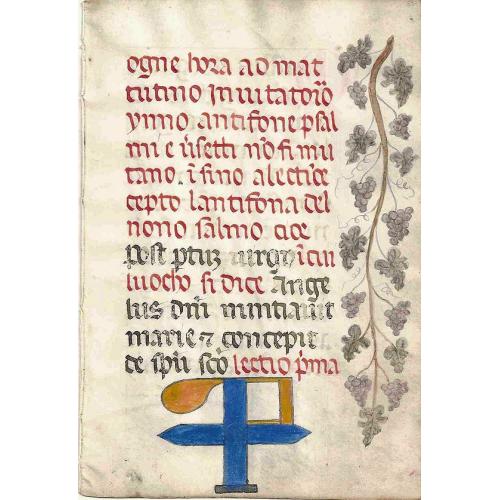 ogne hora ad mat
tutino Jnuitatoro
ymno antifone psal
mi e ũsetti nõ si mu
tano. ĩ fino a lectiõe
cepto lantifona del
nono salmo cioe
Post ptũ uirgo ĩ cui
luocho si dice Ange
lus dñi nuntiauit
marie ⁊ concepit
de spũ scõ lectio p̃ma